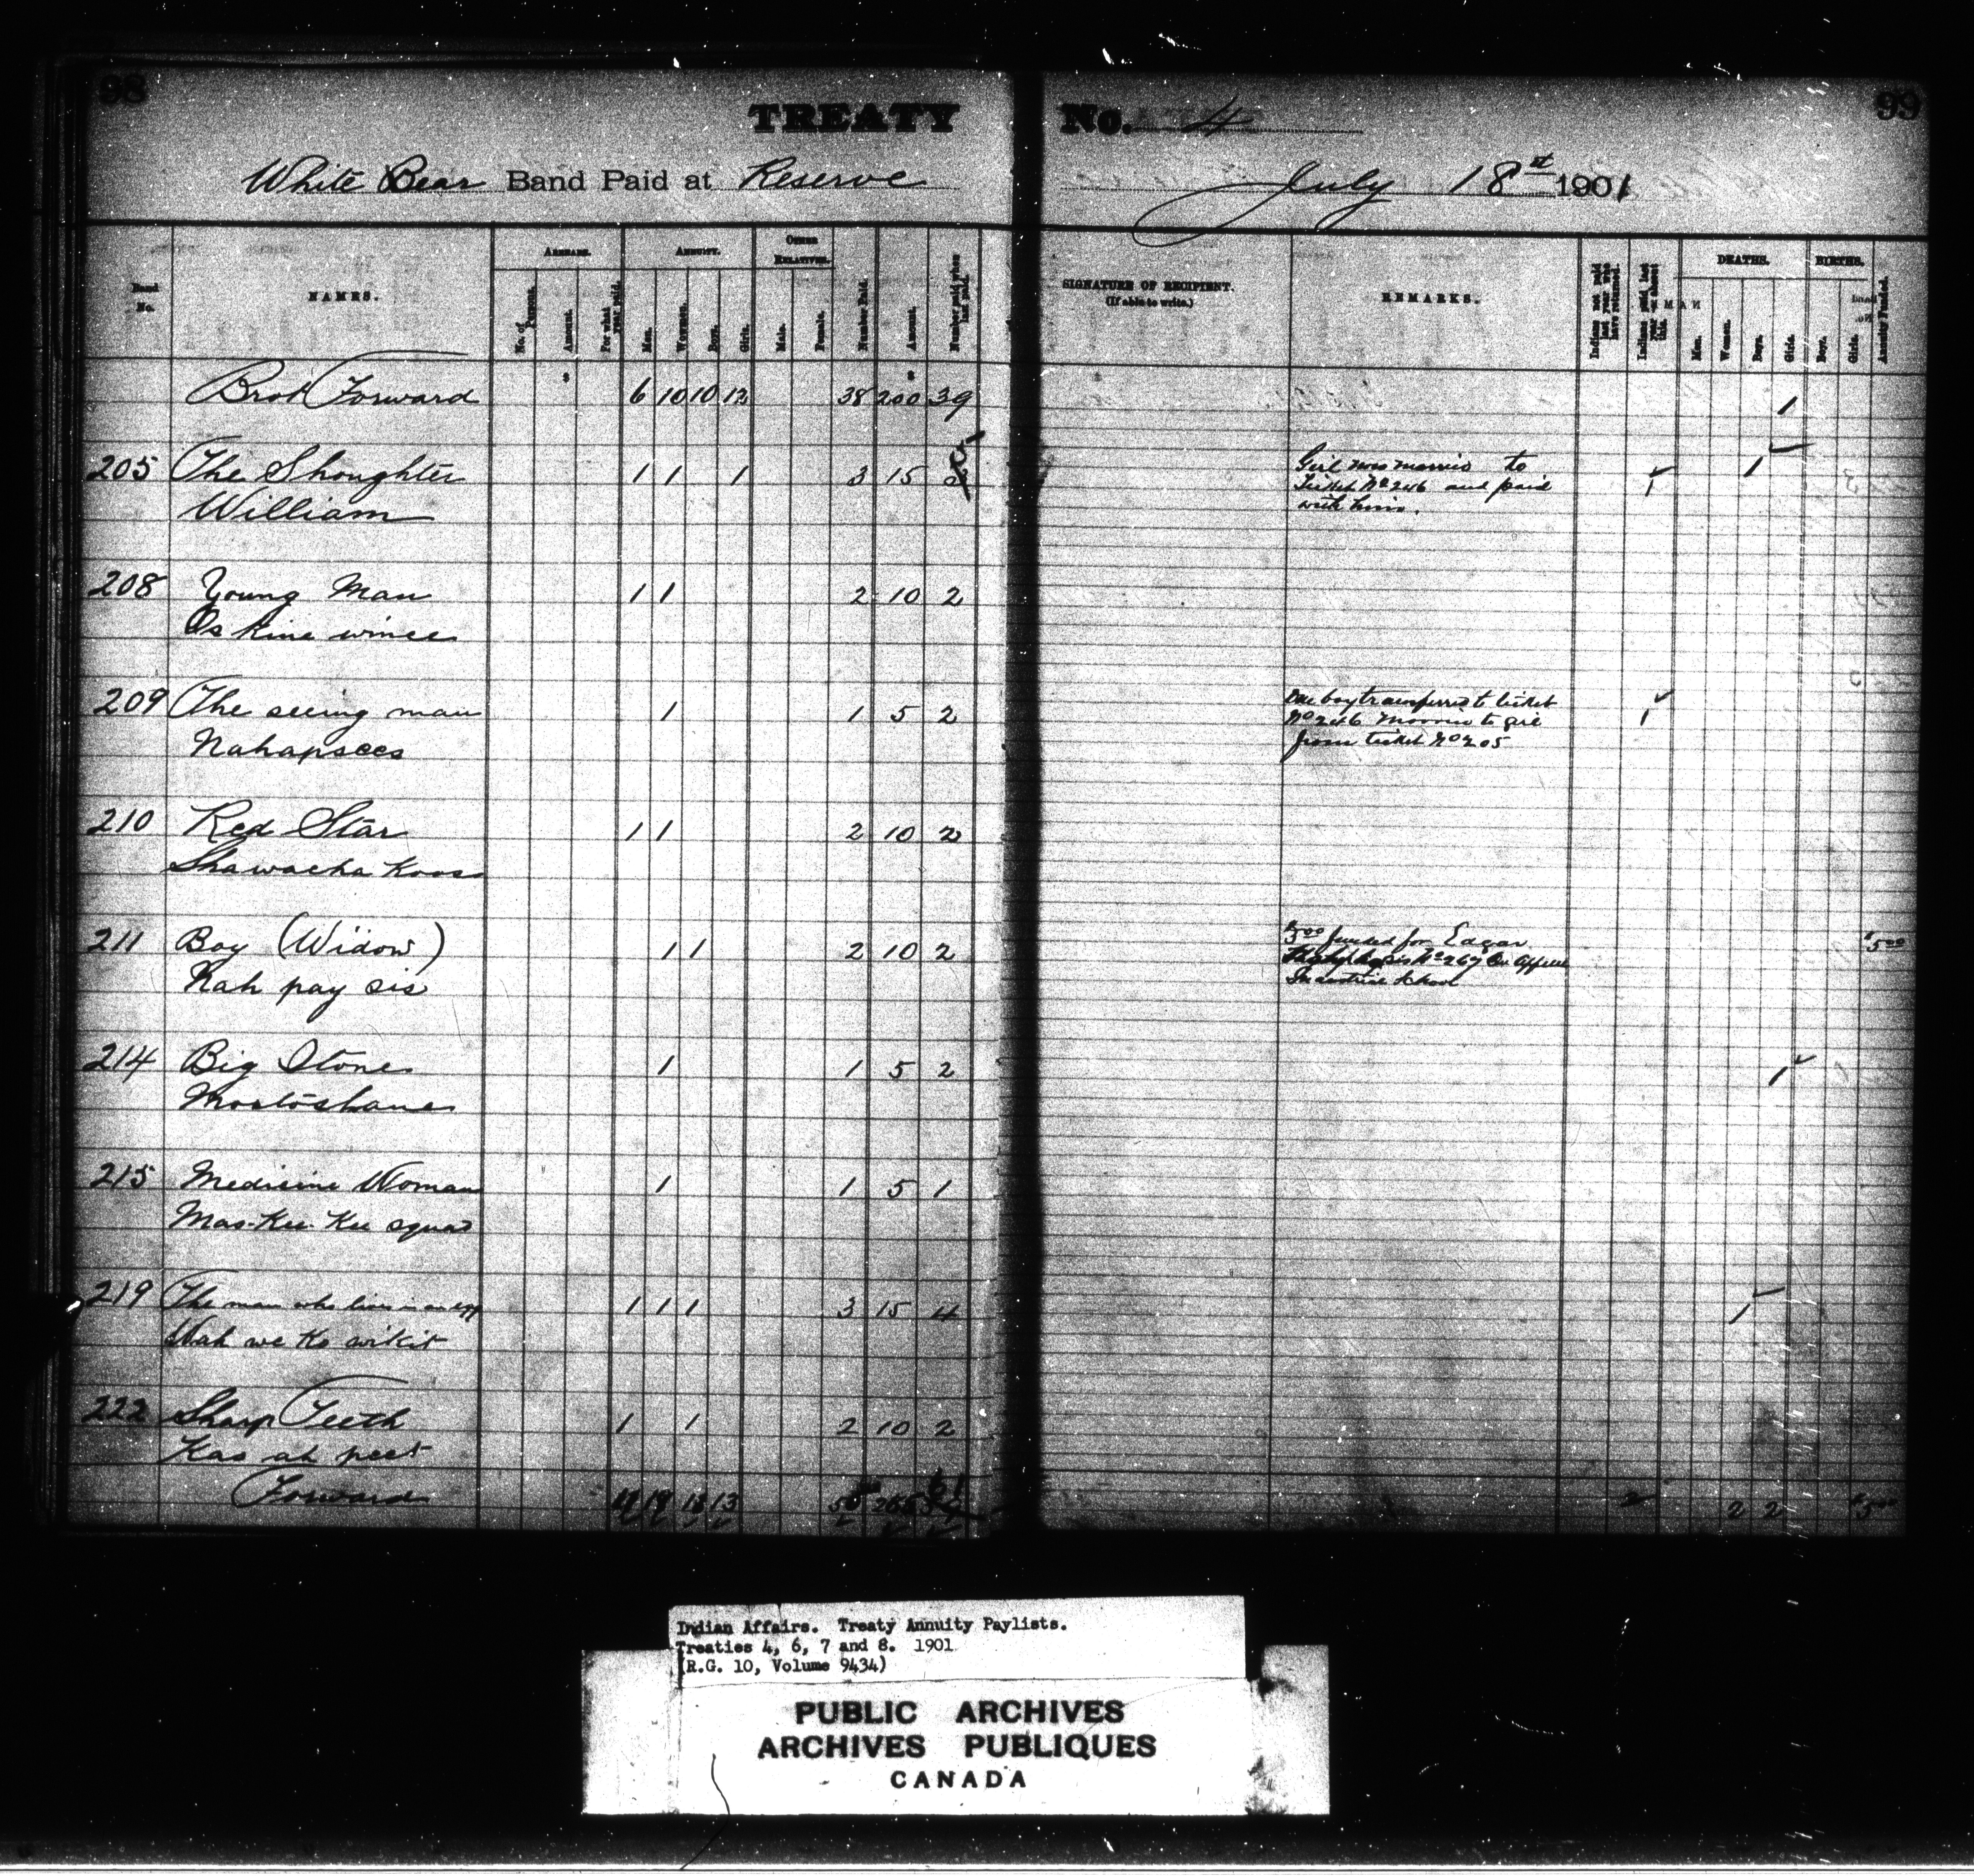 98
TREATY No. 4
99
White Bear Band Paid at Reserve July 18th 1901
Band No.
NAMES.
ARREARS.
No. of Persons.
Amount.
For what year paid.
ANNUITY.
Men.
Women.
Boys.
Girls.
OTHER RELATIVES.
Male.
Female.
Number Paid.
Amount.
Number paid when last paid.
SIGNATURE OF RECIPIENT.
(If able to write.)
REMARKS.
Indians not paid last year who have returned.
Indians paid last year absent this.
DEATHS.
Men.
Women.
Boys.
Girls.
BIRTHS.
Boys.
Girls.
Annuity Funded.
Brot Forward 6 10 10 12 38 200 39 1
205 The Shoughter 1 1 1 3 15 1 1
William
Girl was married to
Ticket No 246 and paid
with him.
208 Young Man 1 1 2 10 2
Os kine winee
209 The seeing man 1 1 5 2 1
Nahapsees
One boy transferred to ticket
No 246 Married to girl
from ticket No 205
210 Red Star 1 1 2 10 2
Shawacha Koos
211 Boy (Widow) 1 1 2 10 2 $5.00
Nah pay sis
$5.00 funded for Edgar
No 267 Qu'Appelle
Industrial School
214 Big Stone 1 1 5 2 1
Mostoshane
215 Medicine Woman 1 1 5 1
Mas-Kee-Kee squaw
219 The man who lives in an egg 1 1 1 3 15 4 1
Wah we Ko wikit
222 Sharp Teeth 1 1 2 10 2
Kas ah peet
Forward 13 13 2 2 2 $5.00
Indian Affairs. Treaty Annuity Paylists.
Treaties 4, 6, 7 and 8. 1901
(R.G. 10, Volume 9434)
PUBLIC ARCHIVES
ARCHIVES PUBLIQUES
CANADA